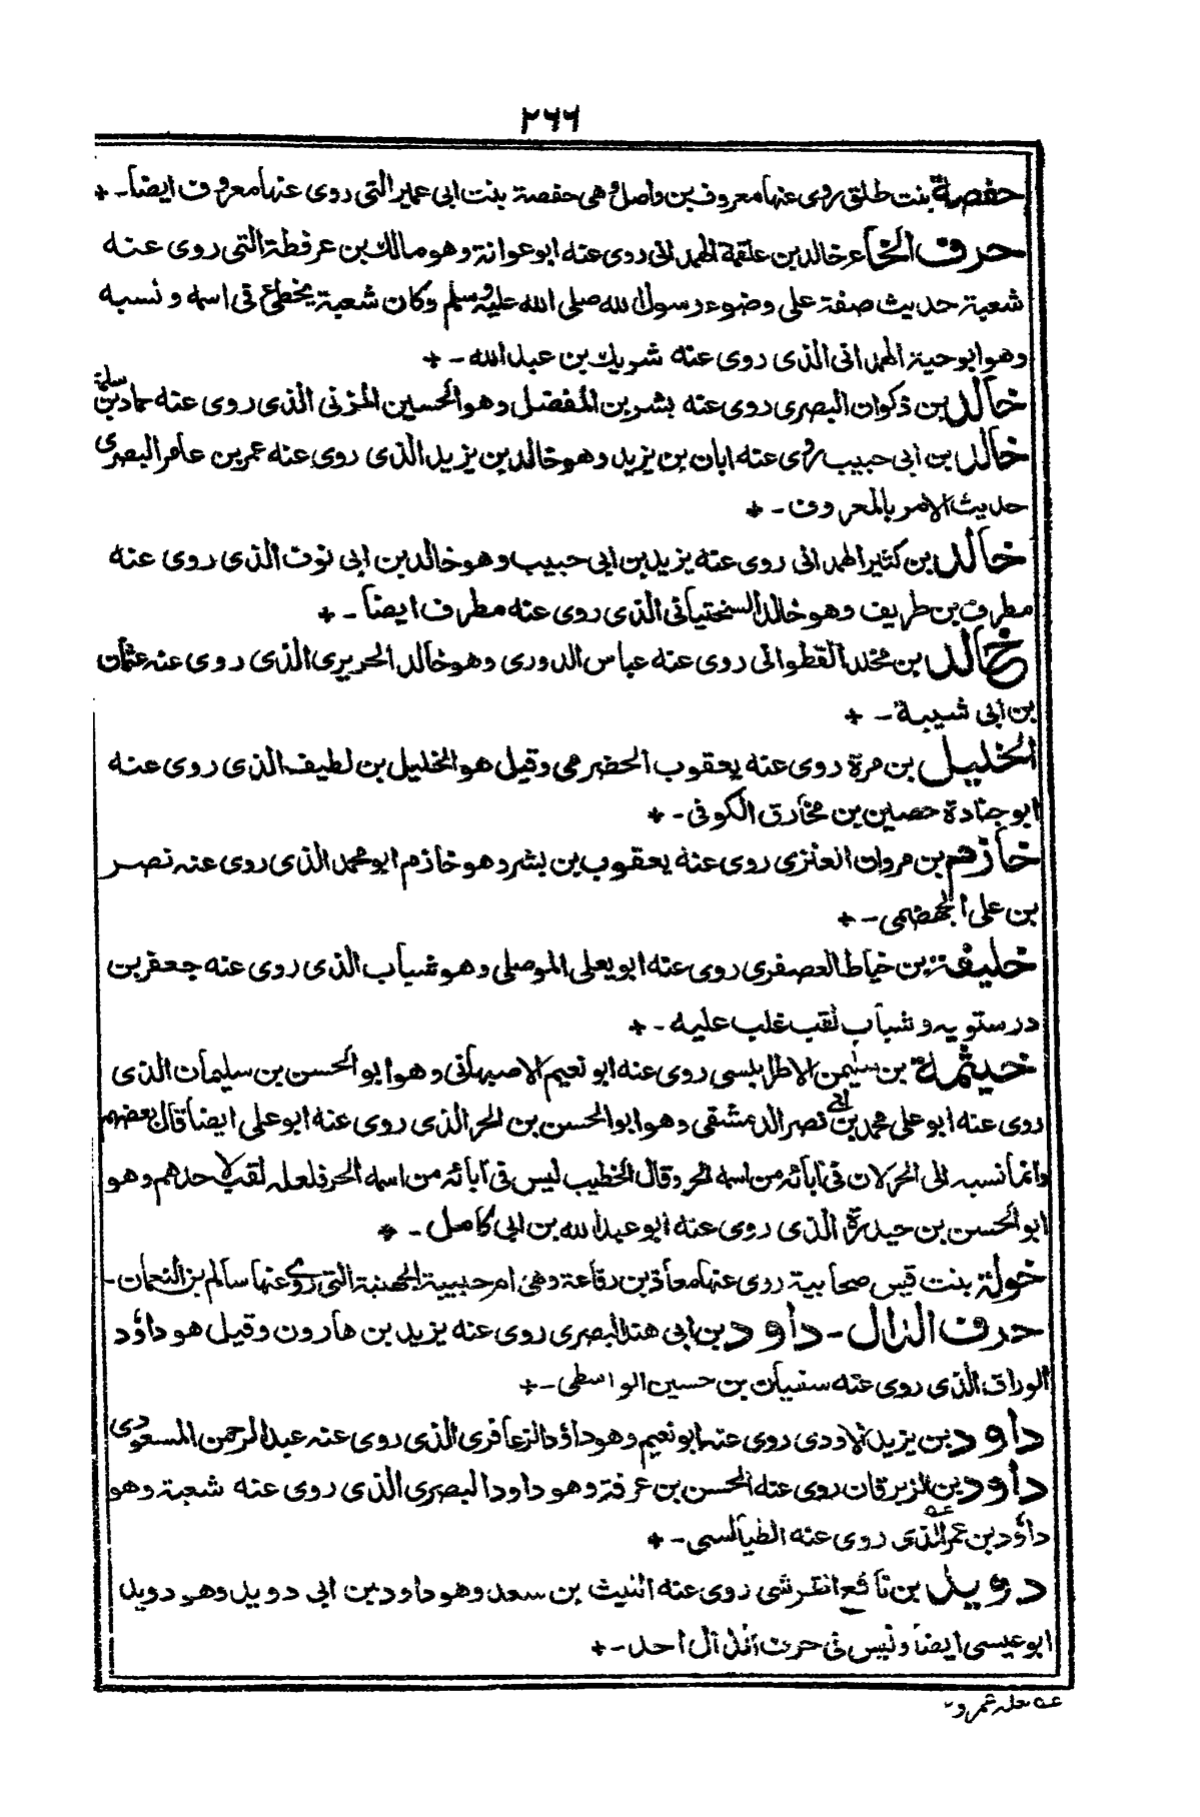 ٢٦٦
حفصة بنت طلق روى عنها معروف بن واصل وهى حفصة بنت ابى عمير التى روى عنها معروف ايضا-+
حرف الخا عر خالد بن علقمة الهمدانى روى عنه ابو عوانة وهو مالك بن عرفطة التى روى عنه
شعبة حديث صفة على وضوء رسول الله صلى الله عليه وسلم وكان شعبة يخطئ فى اسمه ونسبه
وهو ابو حية الهمدانى الذى روى عنه شريك بن عبد الله -+
خالد بن ذكوان البصرى روى عنه بشر بن المفضل وهو الحسين المزنى الذى روى عنه حماد بن سلمة
خالد بن ابى حبيب روى عنه ابان بن يزيد وهو خالد بن يزيد الذى روى عنه عمر بن عامر البصرى
حديث الامر بالمعروف -+
خالد بن كثير الهمدانى روى عنه يزيد بن ابى حبيب وهو خالد بن ابى نوف الذى روى عنه
مطرف بن طريف وهو خالد السختيانى الذى روى عنه مطرف ايضا -+
خالد بن مخلد القطوانى روى عنه عباس الدورى وهو خالد الحريرى الذى روى عنه عثمان
بن ابى شيبة -+
الخليل بن مرة روى عنه يعقوب الحضرمى وقيل هو الخليل بن لطيف الذى روى عنه
ابو جنادة حصين بن مخارق الكوفى -+
خازم بن مروان العنزى روى عنه يعقوب بن بشر وهو خازم ابو محمد الذى روى عنه نصر
بن على الجهضمى -+
خليفة بن خياط العصفرى روى عنه ابو يعلى الموصلى وهو شباب الذى روى عنه جعفر بن
درستويه وشباب لقب غلب عليه -+
خيثمة بن سليمن الاطرابلسى روى عنه ابو نعيم الاصبهانى وهو ابو الحسن بن سليمان الذى
روى عنه ابو على محمد بن ابى نصر الدمشقى وهو ابو الحسن بن الحر الذى روى عنه ابو على ايضا قال بعضهم
وانما نسبه الى الحر لان فى آبائه من اسمه الحر وقال الخطيب ليس فى آبائه من اسمه الحر فلعله لقب لاحدهم وهو
ابو الحسن بن حيدرة الذى روى عنه ابو عبد الله بن ابى كامل -+
خولة بنت قيس صحابية روى عنها معاذ بن رفاعة وهى ام حبيبة الجهنية التى روى عنها سالم بن النعمان-
حرف الدال - داود بن ابى هند البصرى روى عنه يزيد بن هارون وقيل هو داؤد
الوراق الذى روى عنه سفيان بن حسين الواسطى -+
داود بن يزيد الاودى روى عنه ابو نعيم وهو داؤد الزعافرى الذى روى عنه عبد الرحمن المسعودى
داود بن الزبرقان روى عنه الحسن بن عرفة وهو داود البصرى الذى روى عنه شعبة وهو
داؤد بن عمر عه الذى روى عنه الطيالسى -+
دويد بن نافع القرشى روى عنه الليث بن سعد وهو داود بن ابى دويد وهو دويد
ابو عيسى ايضا وليس فى حرف الذال احد -+
عه لعله عمرو